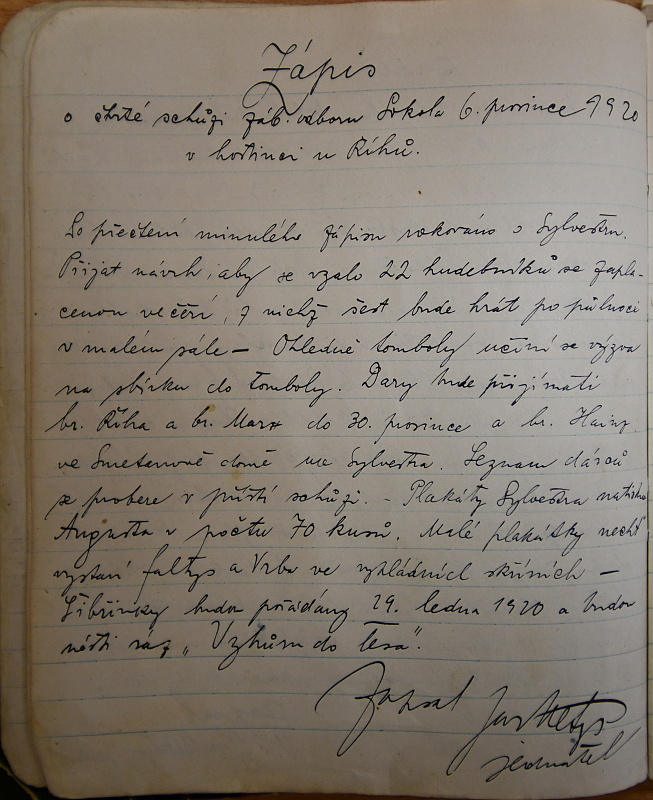 Zápis
o čtvrté schůzi záb. odboru Sokola 6. prosince 1920
v hostinci u Říhů.
Po přečtení minulého zápisu rokováno o Sylvestru.
Přijat návrh, aby se vzalo 22 hudebníků se zapla-
cenou večeří, z nichž šest bude hrát po půlnoci
v malém sále – Ohledně tomboly učiní se výzva
na sbírku do tomboly. Dary bude přijímati
br. Říha a br. Marx do 30. prosince a br. Hainz
ve Smetanově domě na Sylvestra. Seznam dárců
se probere v příští schůzi. – Plakáty Sylvestra natiskne
Augusta v počtu 70 kusů. Malé plakátky nechť
vystaví Faltys a Vrba ve výkladních skříních –
Šibřinky budou pořádány 29. ledna 1920 a budou
nésti ráz „Vzhůru do lesa“.
Zapsal
jednatel